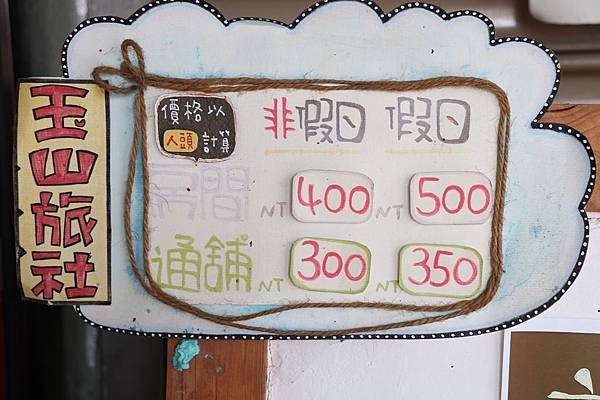 玉山旅社
價格以
人頭計算
非假日 假日
房間 NT 400 NT 500
通舖 NT 300 NT 350